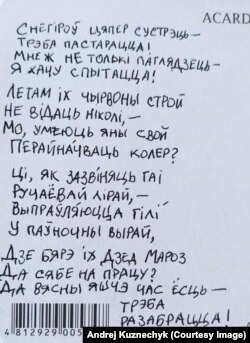 ACARD
СНЕГІРОЎ ЦЯПЕР СУСТРЭЦЬ –
ТРЭБА ПАСТАРАЦЦА!
МНЕЖ НЕ ТОЛЬКІ ПАГЛЯДЗЕЦЬ –
Я ХАЧУ СПЫТАЦЦА!
ЛЕТАМ ІХ ЧЫРВОНЫ СТРОЙ
НЕ ВІДАЦЬ НІКОЛІ, –
МО, УМЕЮЦЬ ЯНЫ СВОЙ
ПЕРАЙНАЧВАЦЬ КОЛЕР?
ЦІ, ЯК ЗАЗВІНЯЦЬ ГАІ
РУЧАЁВАЙ ЛІРАЙ, –
ВЫПРАЎЛЯЮЦЦА ГІЛІ
У ПАЎНОЧНЫ ВЫРАЙ,
ДЗЕ БЯРЭ ІХ ДЗЕД МАРОЗ
ДА СЯБЕ НА ПРАЦУ?
ДА ВЯСНЫ ЯШЧЭ ЧАС ЁСЦЬ –
ТРЭБА
РАЗАБРАЦЦА!
4 812929 005
Andrej Kuznechyk (Courtesy Image)